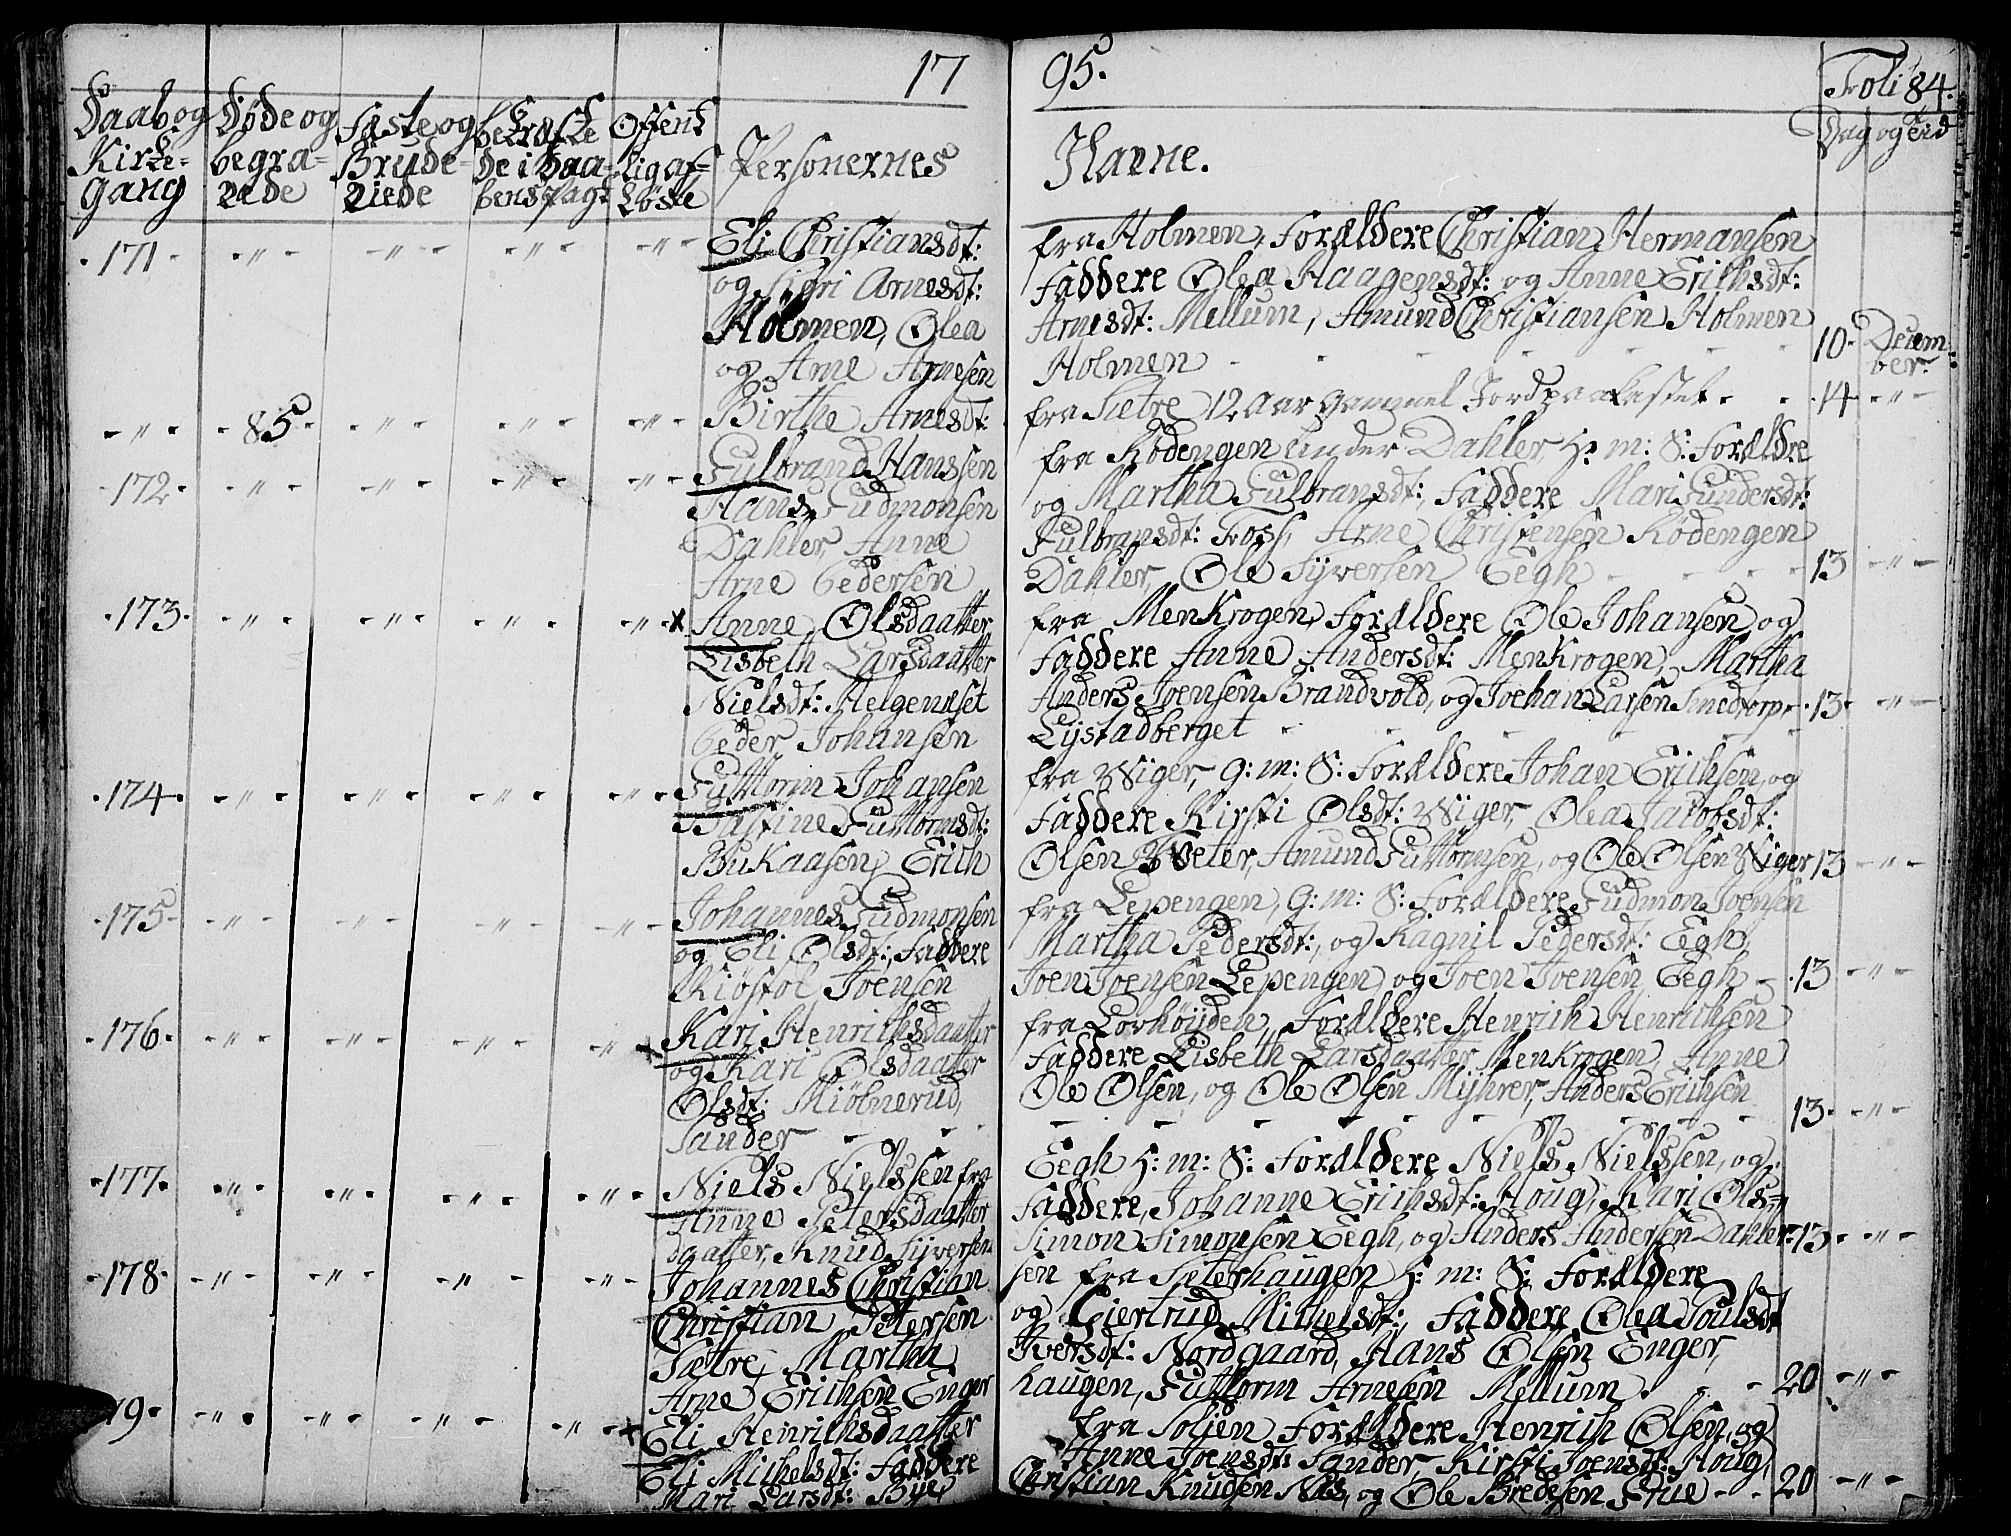 17 95. Foli 84.
Daab og Kirke-gang
Døde og begra-vede
Fæste og Brude-viede
bekræfte-de i Daa-bens pagt
Offent-lig af-løste
Personernes Navne.
Dag og
171 Eli Christiansdt: fra Holmen, Forældere Christian Hermansen
og Sigri Arnesdt: Faddere Olea Haagensdt: og Anne Erichsdt:
Holmen, Olea Arnesdt: Mellum, Amund Christiansen Holmen
og Arne Arnesen Holmen 10 Decem-ber
85 Birthe Arnesdt: fra Sætre 12 Aar gammel Jordpaakastet 14
172 Gulbrand Hanssen fra Rødengen under Dahler H: m: S: Forældre
Hans Gudmonsen og Martha Gulbransdt: Faddere Mari Gundersdt:
Dahler, Anne Gulbransdt: Foss, Arne Christensen Rødengen
Arne Pedersen Dahler, Ole Syversen Eegh 13
173 Anne Olsdaatter fra Menkrogen, Forældere Ole Johansen og
Lisbeth Larsdaatter Faddere Anne Andersdt: Menkrogen, Martha
Nielsdt: Helgenæset Anders Joensen Brandvold, og Joehan Larsen Smedtorp
Peder Johansen Lystadberget 13
174 Guttorm Johansen fra Wiger, G: m: S: Forældere Johan Erichsen og
Bastine Guttormsdt: Faddere Kirsti Olsdt: Wiger, Olea Jacobsdt:
Bukaasen, Erich Olsen Tveter, Amund Guttormsen, og Ole Olsen Wiger 13
175 Johannes Gudmonsen fra Lepengen, G: m: S: Forældere Gudmon Joensen
og Eli Olsdt: Faddere Martha Pedersdt:, og Ragnil Pedersdt: Eegh,
Kiøstol Joensen Joen Joensen Lepengen, og Joen Joensen Eegh 13
176 Kari Henrichsdaatter fra Lovhøyden, Forældere Henrich Henrichsen
og Kari Olsdaatter Faddere Lisbeth Larsdaatter Menkrogen, Anne
Olsdt: Miølnerud, Ole Olsen, og Ole Olsen Myhrer, Anders Erichsen
Sander 13
177 Niels Nielssen fra Eegh H: m: S: Forældere Niels Nielssen, og
Anne Petersdaatter Faddere, Johanne Erichsdt: Houg, Kari Ols-
daatter, Knud Syversen Simon Simonsen Eegh, og Anders Andersen Dahler 13
178 Johannes Christian sen fra Sæterhaugen H: m: S: Forældere
Christian Petersen og Giertrud Michelsdt:, Faddere Olea Poulsdt
Sætre, Martha Iversdt: Nordgaard, Hans Olsen Enger,
Arne Erichsen Enger haugen, Guttorm Arnesen Mellum. 20
79 Eli Henrichsdaatter fra Soljen Forældere Henrich Olsen, og
Eli Michelsdt: Faddere Anne Joensdt: Sander, Kirsti Joensdt: Houg,
Mari Larsdt: Bye, Christian Knudsen Næs, og Ole Bredesen Stue 20